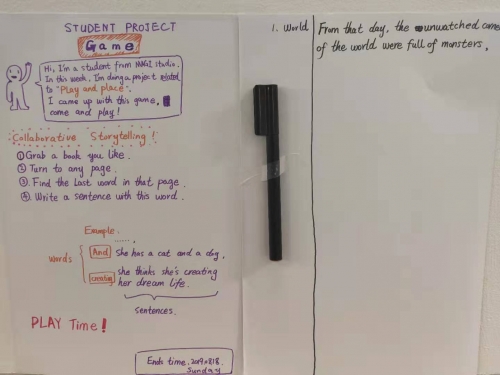 STUDENT PROJECT
Game
Hi, I'm a student from MAGI studio.
In this week, I'm doing a project related
to "Play and place".
I came up with this game,
come and play!
Collaborative Storytelling!
① Grab a book you like.
② Turn to any page.
③ Find the last word in that page.
④ Write a sentence with this word.
Example.
......,
words
And She has a cat and a dog.
creating she thinks she's creating
her dream life.
sentences.
PLAY Time!
Ends time. 2019.8.18.
Sunday
1. World
From that day, the unwatched
of the world were full of monsters.